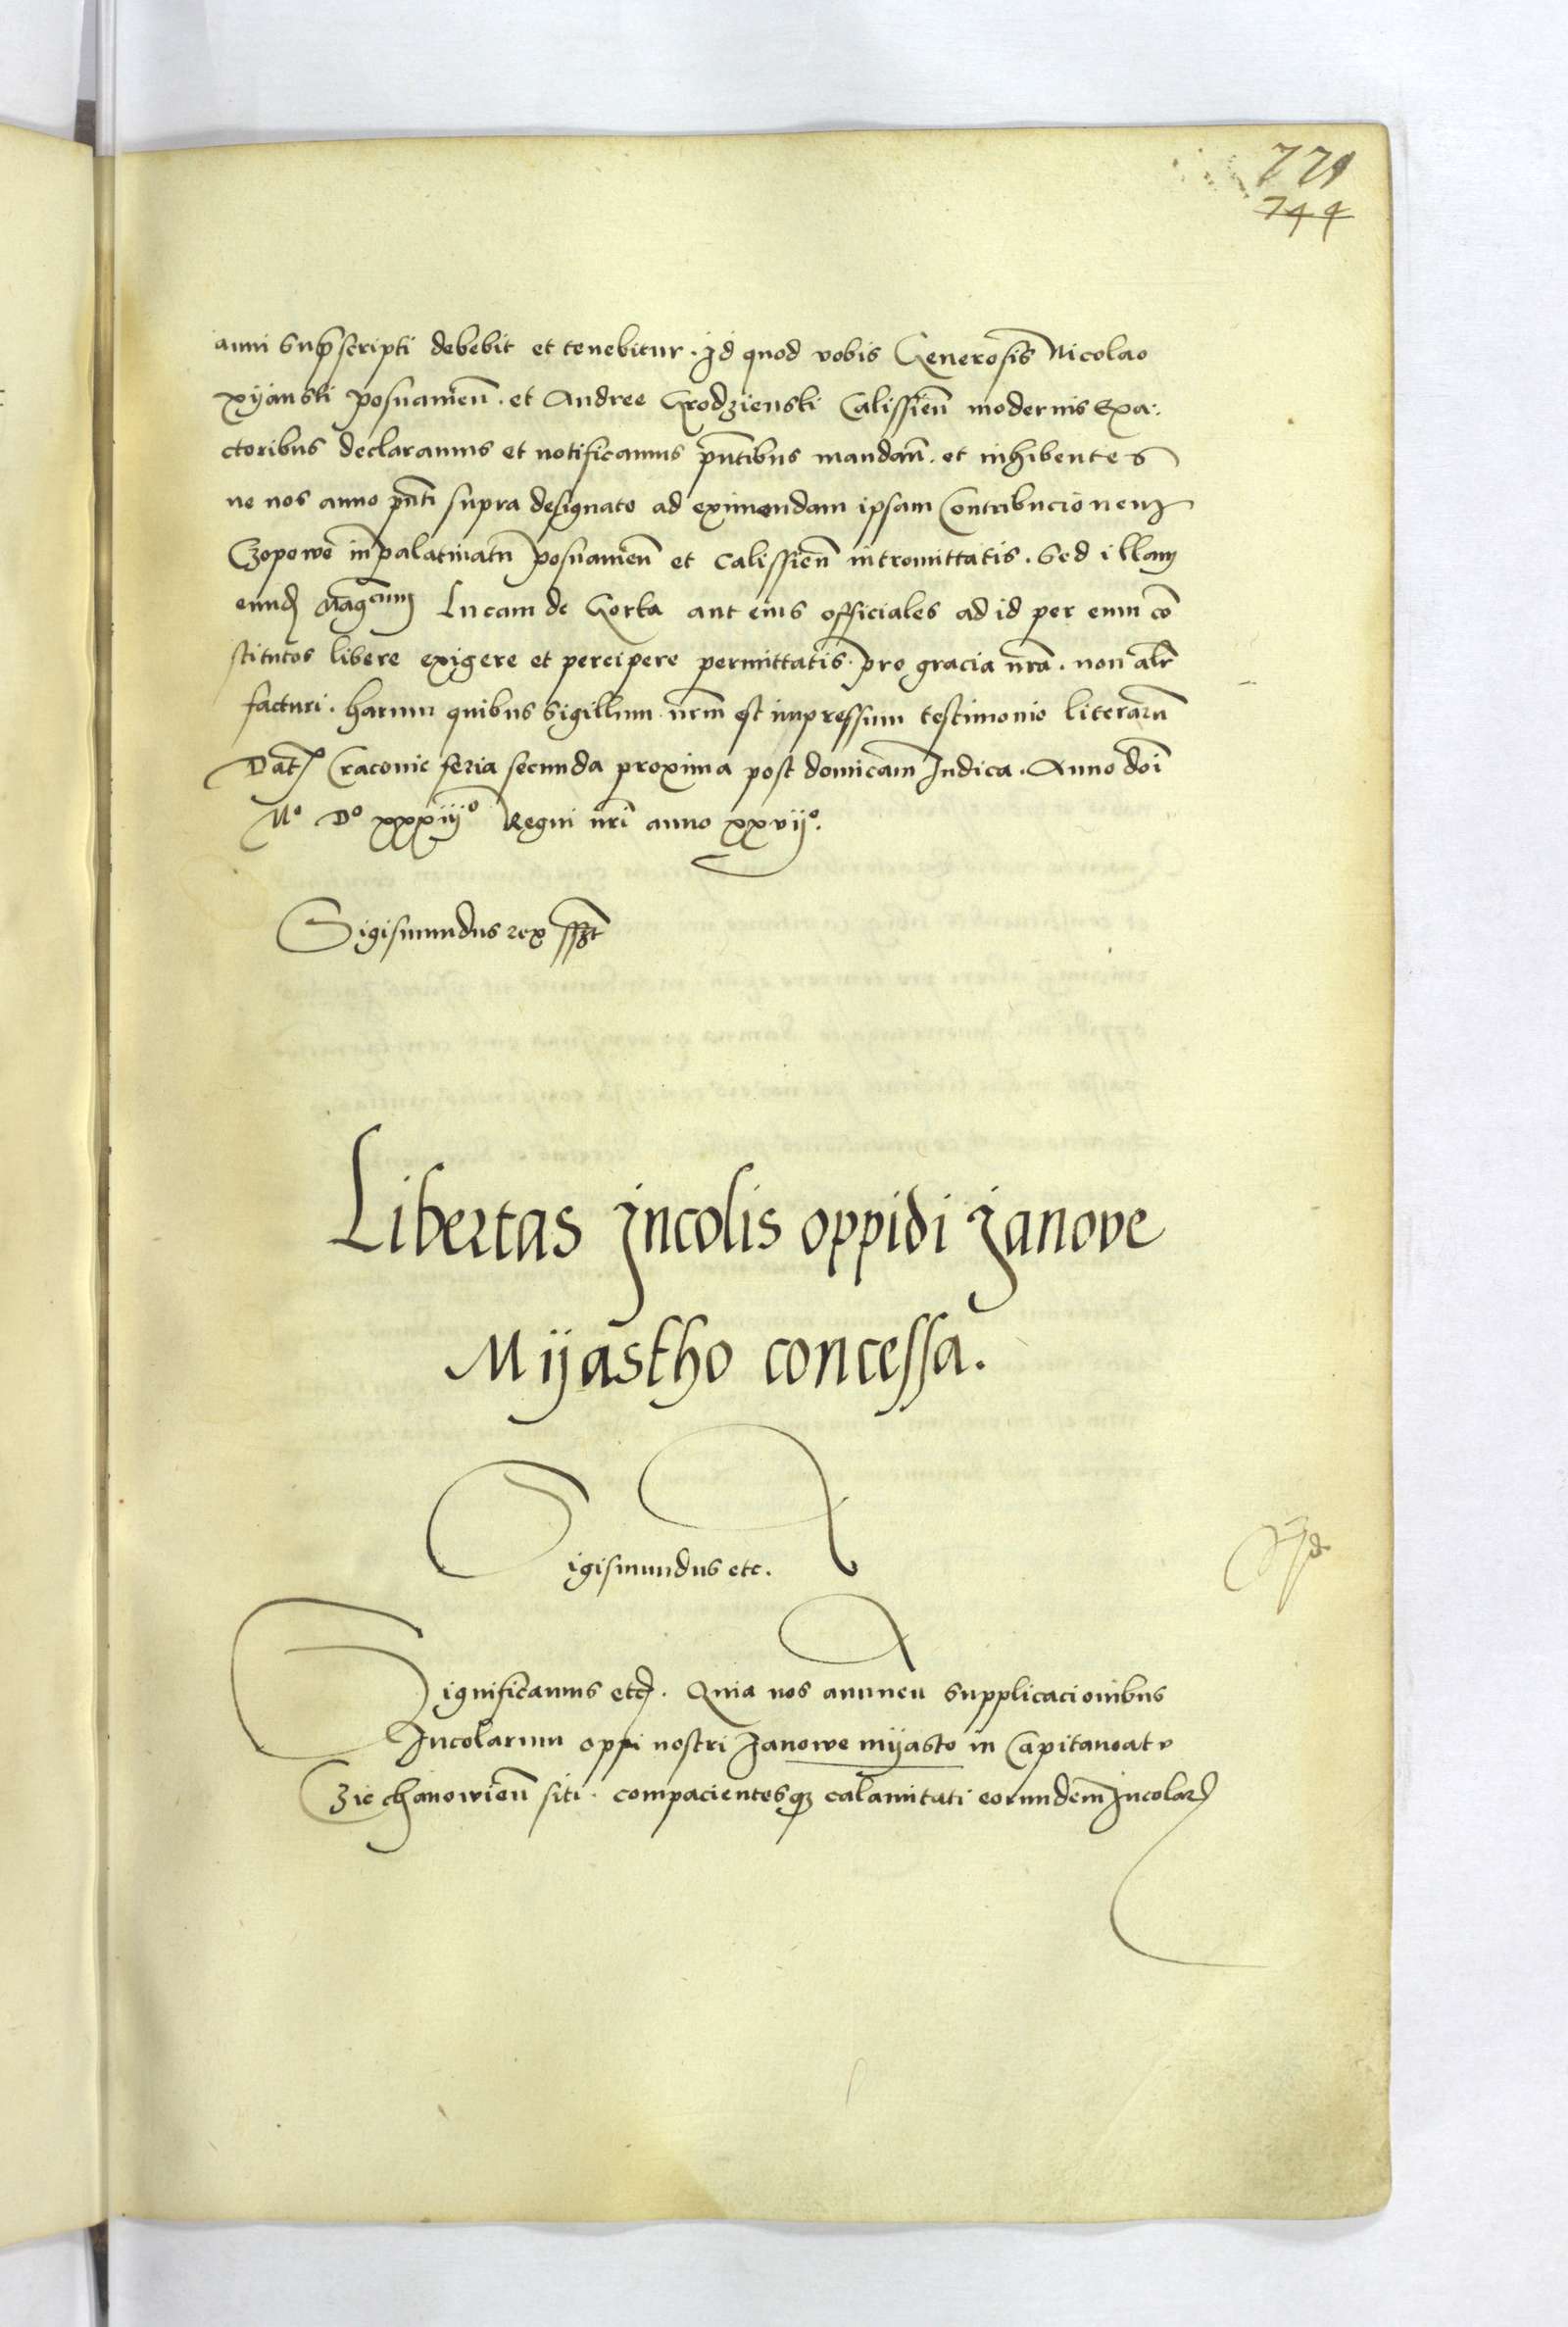 771
744
anni supscripti debebit et tenebitur. Id quod vobis Generosis Nicolao
xyanski posnanien̄. et Andree Grodzienski Calissien̄ modernis Exa-
ctoribus declaramus et notificamus pn̄tibus mandan̄. et inhibentes
ne vos anno pn̄ti supra designato ad eximendam ipsam Contribucionem
Czopowe in palatinatu posnanien̄ et Calissien̄ intromittatis. Sed illam
eund Mag̅cum Lucam de Gorka aut eius officiales ad id per eum cō
stitutos libere exigere et percipere permittatis. pro gracia nrā. non alr̄
facturi. harum quibus Sigillum nrm̄ est impressum testimonio literarū
Dat Cracovie feria secunda proxima post domicam̄ Iudica. Anno doī
Mº Dº xxxiijº Regni nrī anno xxvijº.
Sigismundus rex sszt
Libertas Jncolis oppidi Janove
Mijastho concessa.
Sigismundus etc.
Significamus etc. Quia nos annuen supplicacionibus
Incolarum oppi nostri Janowe mijasto in Capitaneatu
Cziechanowien̄ siti. compacientesq calamitati eorundem Incolar